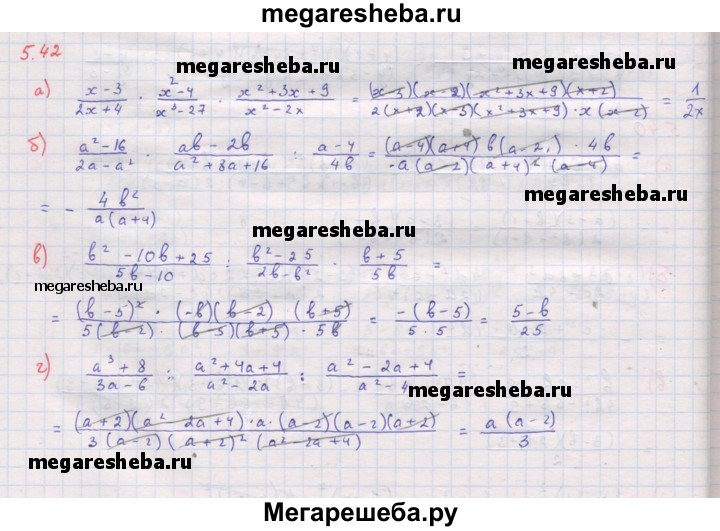 megaresheba.ru
5.42
megaresheba.ru megaresheba.ru
а) (x-3)/(2x+4) · (x²-4)/(x³-27) · (x²+3x+9)/(x²-2x) = (x-3)(x-2)(x²+3x+9)(x+2)/2(x+2)(x-3)(x²+3x+9)·x(x-2) = 1/2x
б) (a²-16)/(2a-a²) · (ab-2b)/(a²+8a+16) : (a-4)/4b = (a-4)(a+4)b(a-2)·4b/-a(a-2)(a+4)²(a-4) =
= - 4b²/a(a+4)
megaresheba.ru
в) (b²-10b+25)/(5b-10) : (b²-25)/(2b-b²) · (b+5)/5b =
megaresheba.ru
= (b-5)²·(-b)(b-2)·(b+5)/5(b-2)·(b-5)(b+5)·5b = -(b-5)/5·5 = (5-b)/25
г) (a³+8)/(3a-6) : (a²+4a+4)/(a²-2a) : (a²-2a+4)/(a²-4) =
megaresheba.ru
= (a+2)(a²-2a+4)·a·(a-2)(a-2)(a+2)/3(a-2)(a+2)²(a²-2a+4) = a(a-2)/3
megaresheba.ru megaresheba.ru
Мегарешеба.ру